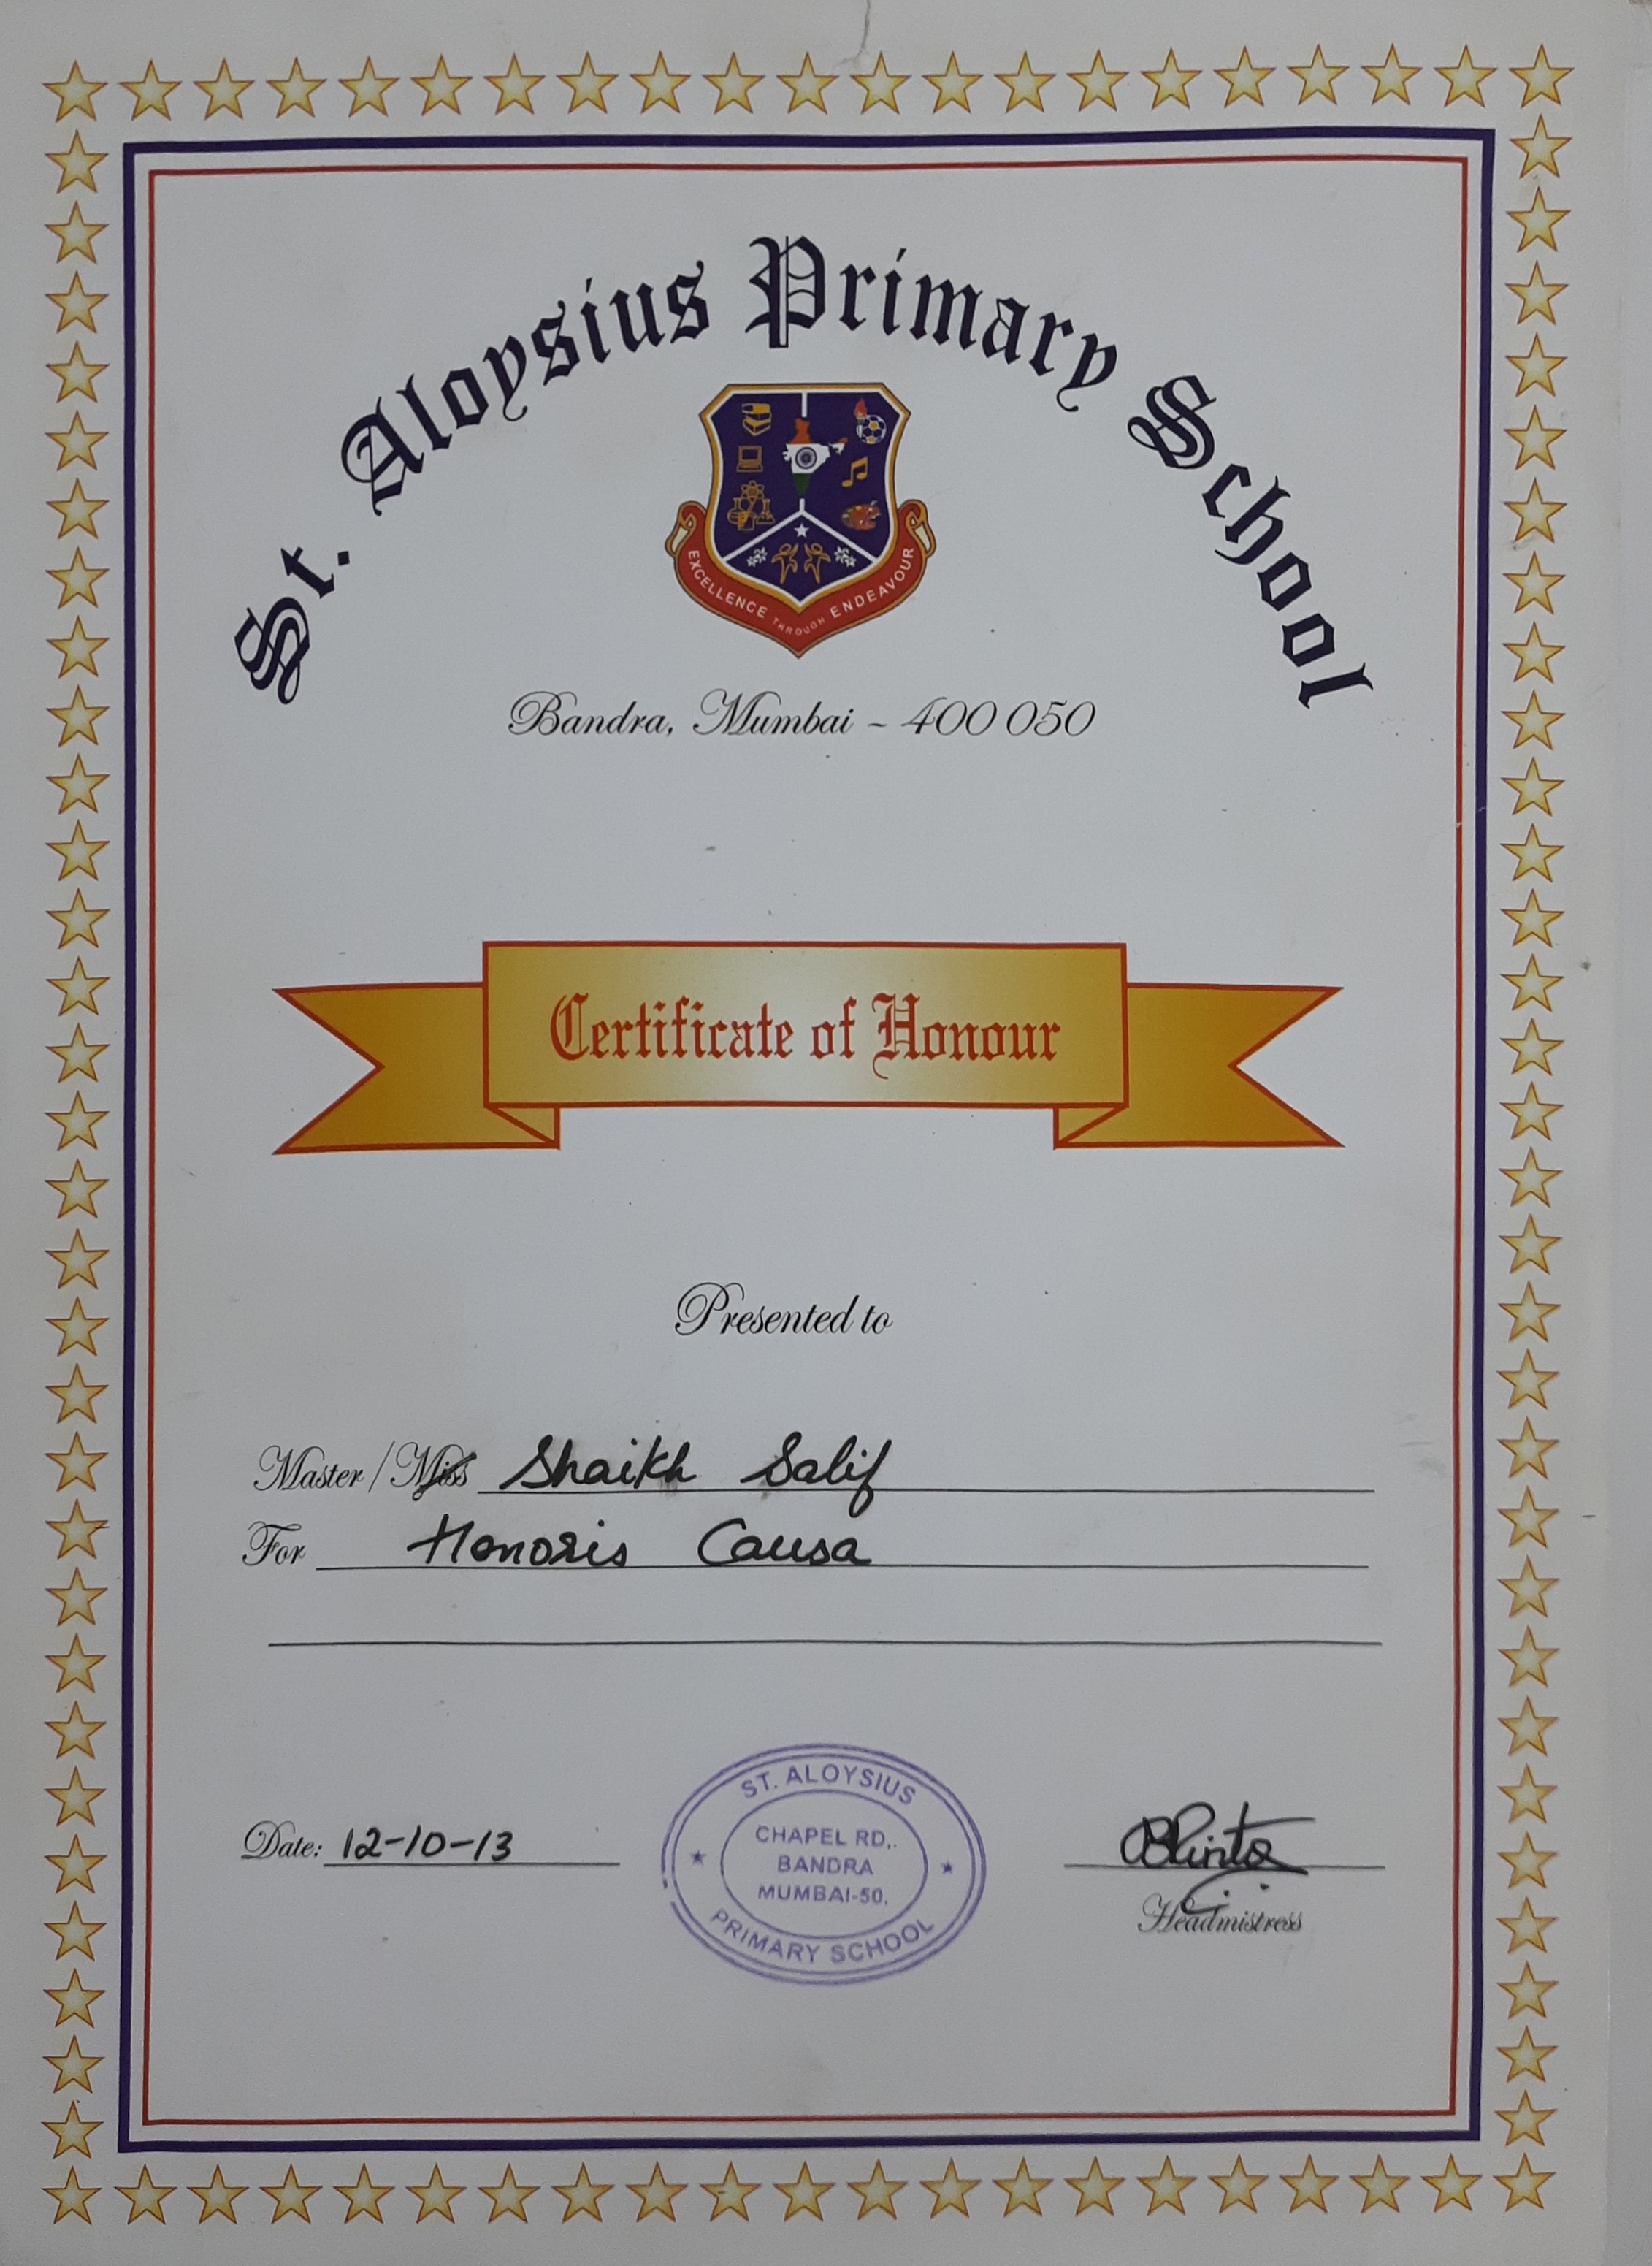 St. Aloysius Primary School
EXCELLENCE THROUGH ENDEAVOUR
Bandra, Mumbai - 400 050
Certificate of Honour
Presented to
Master/Miss Shaikh Salif
For Honoris Causa
Date: 12-10-13
ST. ALOYSIUS
CHAPEL RD,.
BANDRA
MUMBAI-50.
PRIMARY SCHOOL
Headmistress